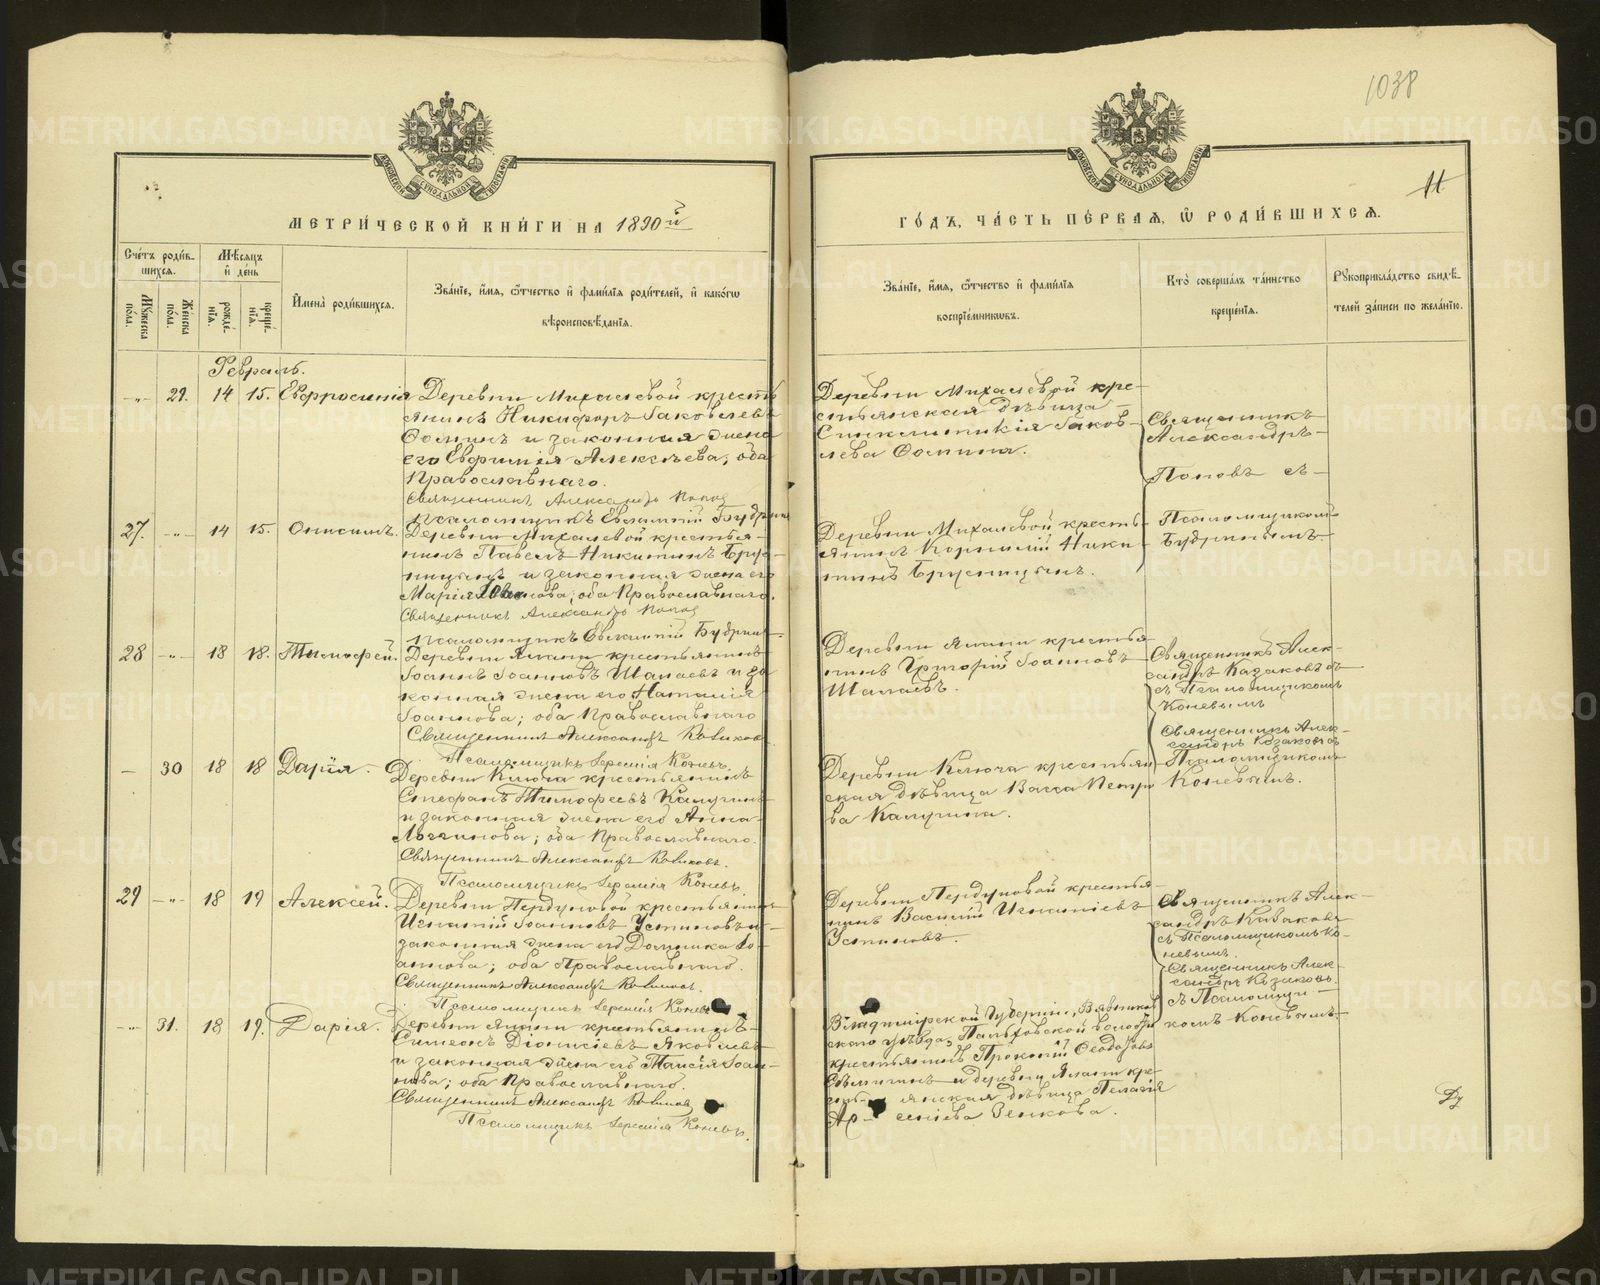 1038
11
МЕТРИ́ЧЕСКОЙ КНИ́ГИ НА 1890й
ГО́ДЪ, ЧА́СТЬ ПЕ́РВАЯ, Ѿ РОДИ́ВШИХСЯ.
Сче́тъ роди́в-
шихся.
Мꙋ́жеска
по́ла.
Же́нска
по́ла.
Мѣ́сяцъ
и҆ де́нь
рожде́-
нїя.
креще́-
нїя.
И҆мена̀ роди́вшихся.
Зва́нїе, и҆́мя, ѻ҆́тчество и҆ фами́лїя роди́телей, и҆ како́гѡ
вѣроисповѣ́данїя.
Зва́нїе, и҆́мя, ѻ҆́тчество и҆ фами́лїя
воспрїе́мникѡвъ.
Кто̀ соверша́лъ та́инство
креще́нїя.
Рꙋкоприкла́дство свидѣ́-
телей за́писи по жела́нїю.
Февраль.
-"- 29. 14 15. Евфросинія
Деревни Михалевой кресть
янинъ Никифоръ Іаковлевъ
Ѳоминъ и законная жена
его Евфимія Алексѣева, оба
Православнаго.
Священникъ Александръ Попов
Псаломщикъ Евлампій Будрин
Деревни Михалевой кре-
стьянская дѣвица
Синклитикія Іаков-
лева Ѳомина.
Священникъ
Александръ
Поповъ съ
Псаломщикомъ
Будринымъ
27. -"- 14 15. Онисимъ.
Деревни Михалевой крестья-
нинъ Павелъ Никитинъ Брус-
ницынъ и законная жена его
Марія нова; оба Православнаго.
Священникъ Александръ Попов
Псаломщикъ Евлампій Будрин
Деревни Михалевой кресть-
янинъ Корнилій Ники-
тинъ Брусницынъ.
28 -"- 18 18. Тимофей.
Деревни крестьянинъ
Іоаннъ Іоанновъ Шалаевъ и за
конная жена его Наталія
Іоаннова; оба Православнаго
Священникъ Александръ Казаковъ
Псаломщикъ Іеремія Коневъ.
Деревни крестья-
нинъ Григорій Іоанновъ
Шалаевъ.
Священникъ Алек-
сандръ Казаковъ
съ Псаломщикомъ
Коневымъ
— 30 18 18 Дарія.
Деревни Ключа крестьянинъ
Стефанъ Тимофеевъ Калугинъ
и законная жена его Анна
Логгинова; оба Православнаго.
Священникъ Александръ Казаковъ.
Псаломщикъ Іеремія Коневъ.
Деревни Ключа крестьян
ская дѣвица Васса Петро
ва Калугина.
Священникъ Алек-
сандръ Казаковъ съ
Псаломщикомъ
Коневымъ.
29 -"- 18 19 Алексѣй.
Деревни Пердуновой крестьянинъ
Игнатій Іоанновъ Устиновъ и
законная жена его Домника Іо-
аннова; оба Православнаго.
Священникъ Александръ Казаковъ.
Псаломщикъ Іеремія Коневъ
Деревни Пердуновой крестья-
нинъ Василій Игнатіевъ
Устиновъ.
Священникъ Алек-
сандръ Казаковъ
съ Псаломщикомъ Ко-
невымъ.
-"- 31. 18 19. Дарія.
Деревни крестьянинъ
Симеонъ Діонисіевъ Яковлевъ
и законная жена его Таисія Іоан-
нова; оба Православнаго.
Священникъ Александръ Казаковъ
Псаломщикъ Іеремія Коневъ.
Владимірской Губерніи, Вязников
скаго уѣзда, Палеховской волости
крестьянинъ Прокопій Ѳеодоровъ
и деревни кре-
янская дѣвица Пелагія
Ар сеніева Зенкова.
Священникъ Алек-
сандръ Казаковъ.
съ Псаломщи-
комъ Коневымъ.
METRIKI.GASO-URAL.RU